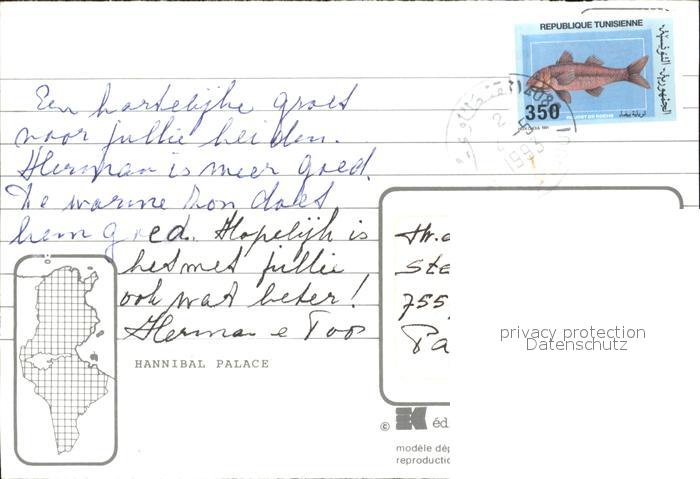 REPUBLIQUE TUNISIENNE
الجمهورية التونسية
350
ROUGET DE ROCHE
1993
Een hartelijke groet
voor jullie beiden.
Herman is weer goed.
De warme zon doet
hem goed. Hopelijk is
het met jullie
ook wat beter!
Herman e Toos
HANNIBAL PALACE
755
Pa
privacy protection
Datenschutz
©
éd
modèle dép
reproductio